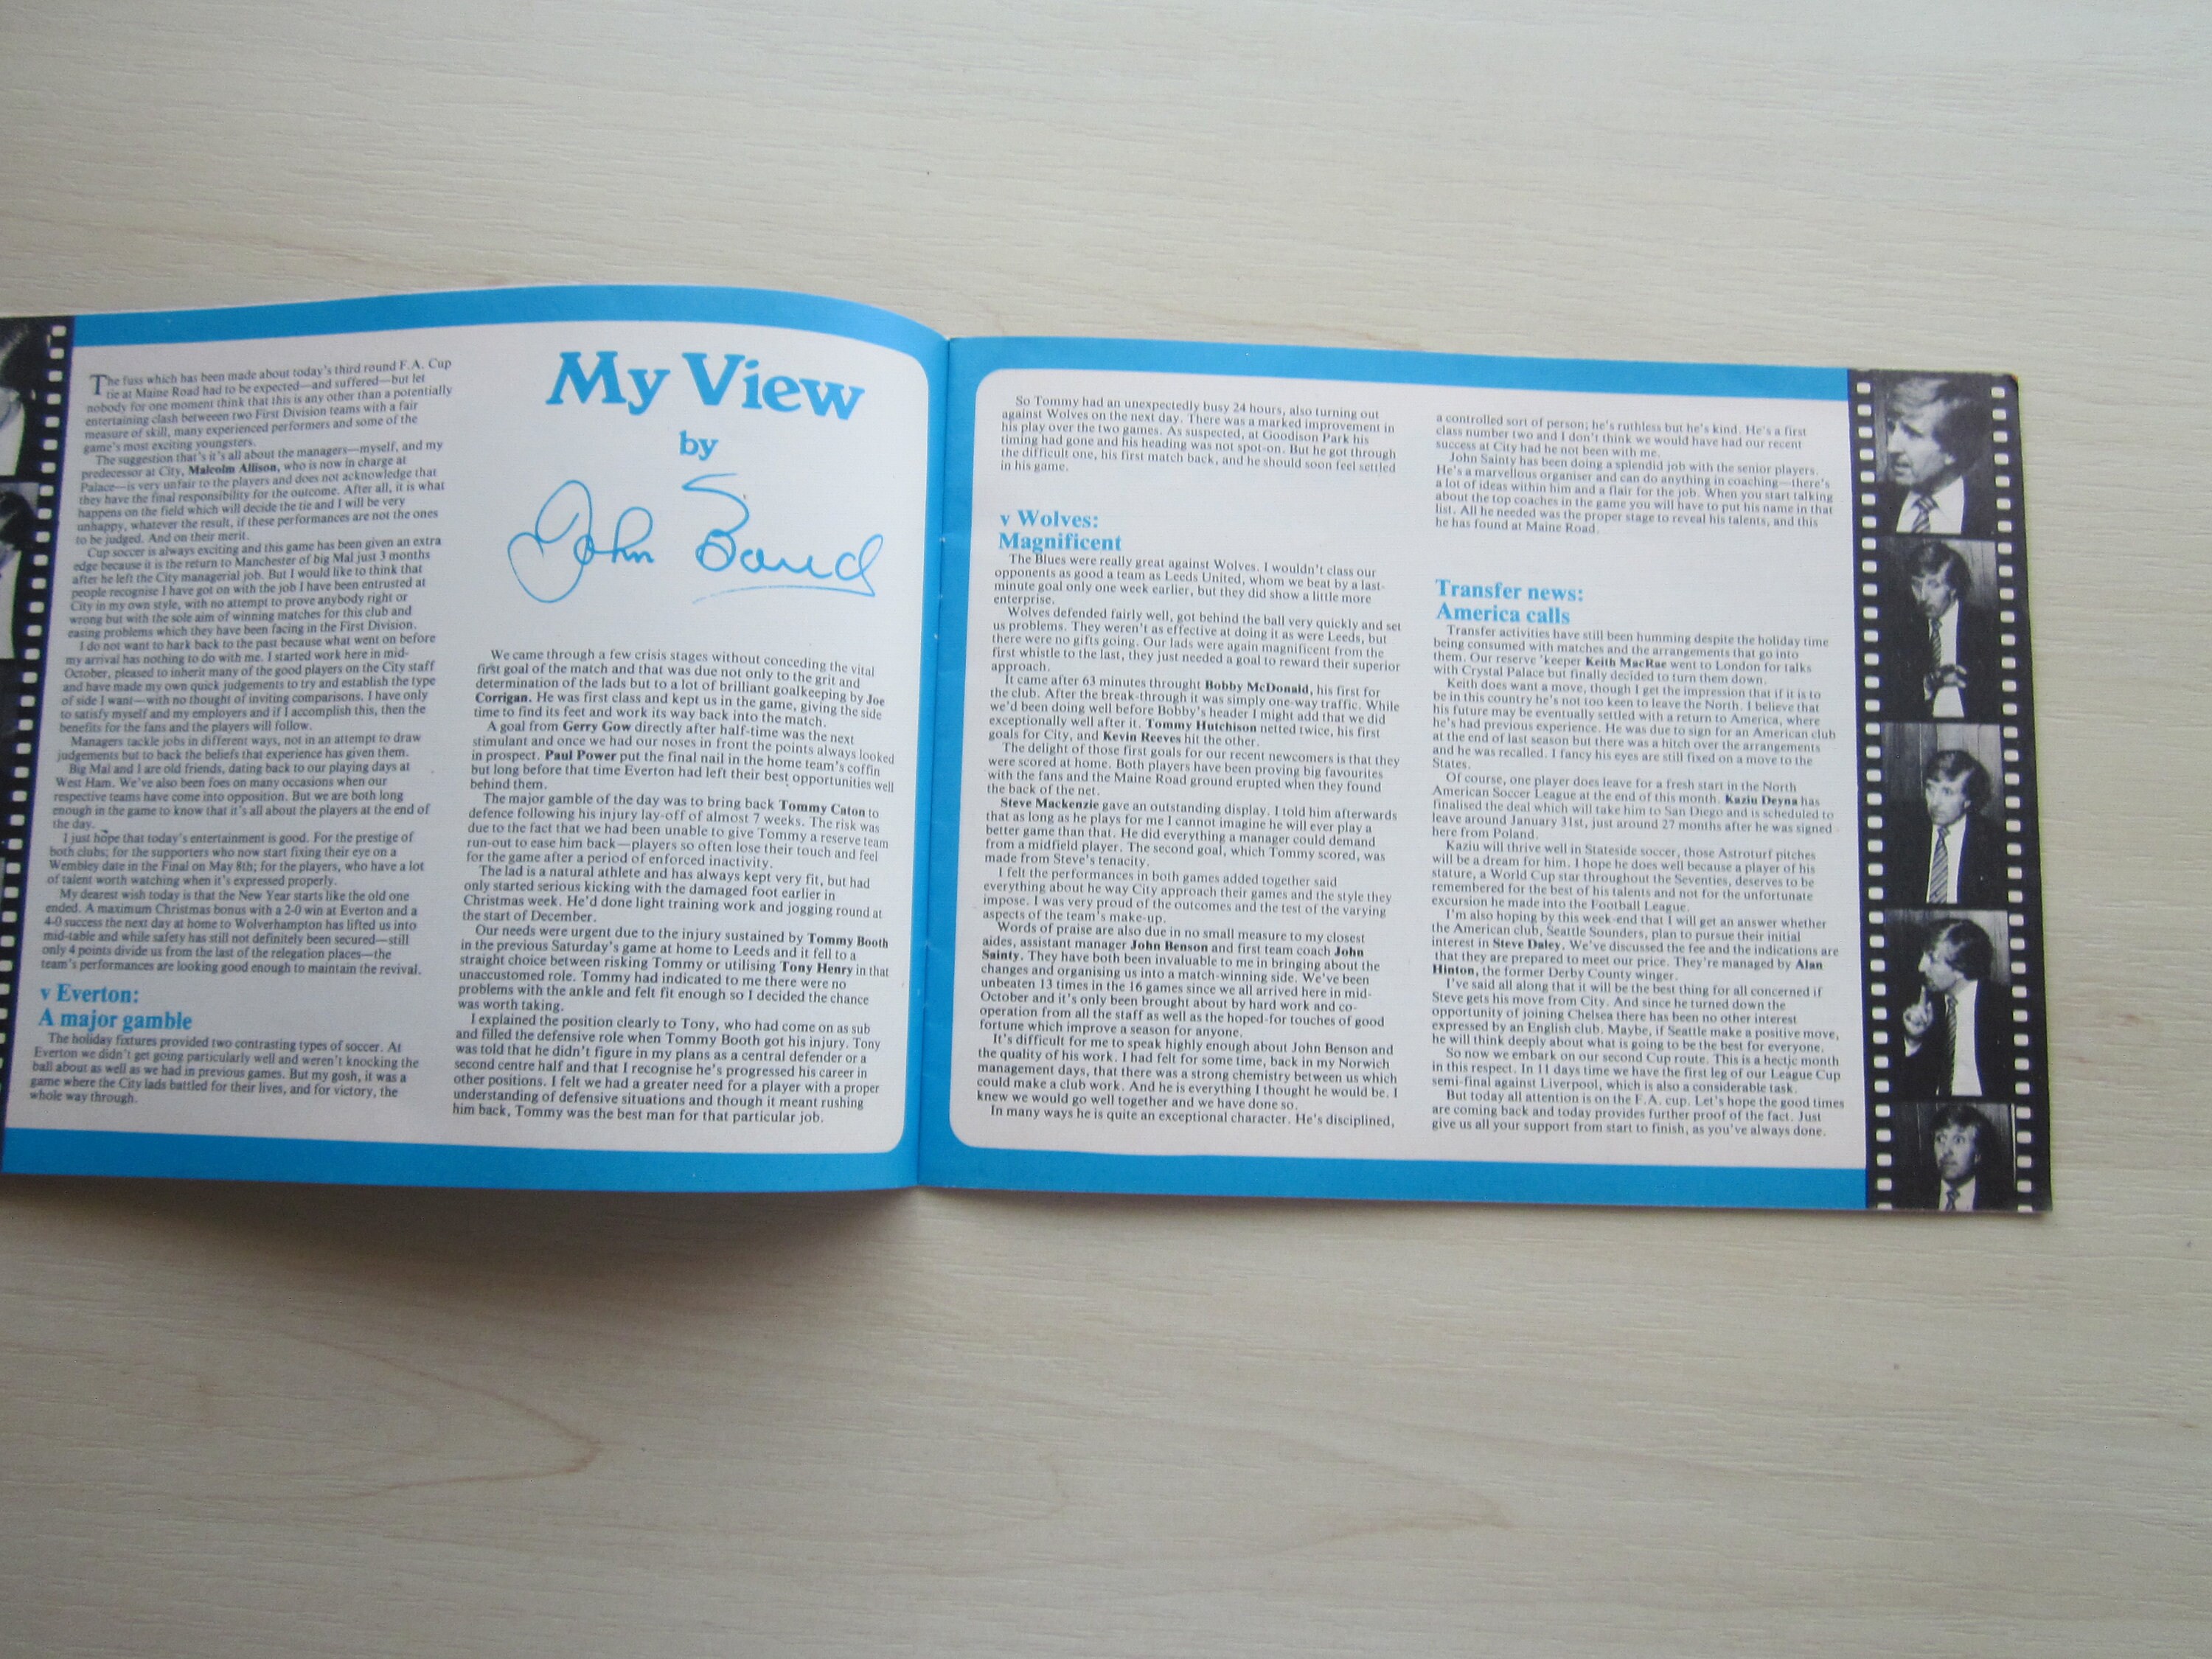 The fuss which has been made about today's third round F.A. Cup
tie at Maine Road had to be expected—and suffered—but let
nobody for one moment think that this is any other than a potentially
entertaining clash betweeen two First Division teams with a fair
measure of skill, many experienced performers and some of the
game's most exciting youngsters.
The suggestion that's it's all about the managers—myself, and my
predecessor at City, Malcolm Allison, who is now in charge at
Palace—is very unfair to the players and does not acknowledge that
they have the final responsibility for the outcome. After all, it is what
happens on the field which will decide the tie and I will be very
unhappy, whatever the result, if these performances are not the ones
to be judged. And on their merit.
Cup soccer is always exciting and this game has been given an extra
edge because it is the return to Manchester of big Mal just 3 months
after he left the City managerial job. But I would like to think that
people recognise I have got on with the job I have been entrusted at
City in my own style, with no attempt to prove anybody right or
wrong but with the sole aim of winning matches for this club and
easing problems which they have been facing in the First Division.
I do not want to hark back to the past because what went on before
my arrival has nothing to do with me. I started work here in mid-
October, pleased to inherit many of the good players on the City staff
and have made my own quick judgements to try and establish the type
of side I want—with no thought of inviting comparisons. I have only
to satisfy myself and my employers and if I accomplish this, then the
benefits for the fans and the players will follow.
Managers tackle jobs in different ways, not in an attempt to draw
judgements but to back the beliefs that experience has given them.
Big Mal and I are old friends, dating back to our playing days at
West Ham. We've also been foes on many occasions when our
respective teams have come into opposition. But we are both long
enough in the game to know that it's all about the players at the end of
the day.
I just hope that today's entertainment is good. For the prestige of
both clubs; for the supporters who now start fixing their eye on a
Wembley date in the Final on May 8th; for the players, who have a lot
of talent worth watching when it's expressed properly.
My dearest wish today is that the New Year starts like the old one
ended. A maximum Christmas bonus with a 2-0 win at Everton and a
4-0 success the next day at home to Wolverhampton has lifted us into
mid-table and while safety has still not definitely been secured—still
only 4 points divide us from the last of the relegation places—the
team's performances are looking good enough to maintain the revival.
v Everton:
A major gamble
The holiday fixtures provided two contrasting types of soccer. At
Everton we didn't get going particularly well and weren't knocking the
ball about as well as we had in previous games. But my gosh, it was a
game where the City lads battled for their lives, and for victory, the
whole way through.
My View
by
John Bond
We came through a few crisis stages without conceding the vital
first goal of the match and that was due not only to the grit and
determination of the lads but to a lot of brilliant goalkeeping by Joe
Corrigan. He was first class and kept us in the game, giving the side
time to find its feet and work its way back into the match.
A goal from Gerry Gow directly after half-time was the next
stimulant and once we had our noses in front the points always looked
in prospect. Paul Power put the final nail in the home team's coffin
but long before that time Everton had left their best opportunities well
behind them.
The major gamble of the day was to bring back Tommy Caton to
defence following his injury lay-off of almost 7 weeks. The risk was
due to the fact that we had been unable to give Tommy a reserve team
run-out to ease him back—players so often lose their touch and feel
for the game after a period of enforced inactivity.
The lad is a natural athlete and has always kept very fit, but had
only started serious kicking with the damaged foot earlier in
Christmas week. He'd done light training work and jogging round at
the start of December.
Our needs were urgent due to the injury sustained by Tommy Booth
in the previous Saturday's game at home to Leeds and it fell to a
straight choice between risking Tommy or utilising Tony Henry in that
unaccustomed role. Tommy had indicated to me there were no
problems with the ankle and felt fit enough so I decided the chance
was worth taking.
I explained the position clearly to Tony, who had come on as sub
and filled the defensive role when Tommy Booth got his injury. Tony
was told that he didn't figure in my plans as a central defender or a
second centre half and that I recognise he's progressed his career in
other positions. I felt we had a greater need for a player with a proper
understanding of defensive situations and though it meant rushing
him back, Tommy was the best man for that particular job.
So Tommy had an unexpectedly busy 24 hours, also turning out
against Wolves on the next day. There was a marked improvement in
his play over the two games. As suspected, at Goodison Park his
timing had gone and his heading was not spot-on. But he got through
the difficult one, his first match back, and he should soon feel settled
in his game.
v Wolves:
Magnificent
The Blues were really great against Wolves. I wouldn't class our
opponents as good a team as Leeds United, whom we beat by a last-
minute goal only one week earlier, but they did show a little more
enterprise.
Wolves defended fairly well, got behind the ball very quickly and set
us problems. They weren't as effective at doing it as were Leeds, but
there were no gifts going. Our lads were again magnificent from the
first whistle to the last, they just needed a goal to reward their superior
approach.
It came after 63 minutes throught Bobby McDonald, his first for
the club. After the break-through it was simply one-way traffic. While
we'd been doing well before Bobby's header I might add that we did
exceptionally well after it. Tommy Hutchison netted twice, his first
goals for City, and Kevin Reeves hit the other.
The delight of those first goals for our recent newcomers is that they
were scored at home. Both players have been proving big favourites
with the fans and the Maine Road ground erupted when they found
the back of the net.
Steve Mackenzie gave an outstanding display. I told him afterwards
that as long as he plays for me I cannot imagine he will ever play a
better game than that. He did everything a manager could demand
from a midfield player. The second goal, which Tommy scored, was
made from Steve's tenacity.
I felt the performances in both games added together said
everything about he way City approach their games and the style they
impose. I was very proud of the outcomes and the test of the varying
aspects of the team's make-up.
Words of praise are also due in no small measure to my closest
aides, assistant manager John Benson and first team coach John
Sainty. They have both been invaluable to me in bringing about the
changes and organising us into a match-winning side. We've been
unbeaten 13 times in the 16 games since we all arrived here in mid-
October and it's only been brought about by hard work and co-
operation from all the staff as well as the hoped-for touches of good
fortune which improve a season for anyone.
It's difficult for me to speak highly enough about John Benson and
the quality of his work. I had felt for some time, back in my Norwich
management days, that there was a strong chemistry between us which
could make a club work. And he is everything I thought he would be. I
knew we would go well together and we have done so.
In many ways he is quite an exceptional character. He's disciplined,
a controlled sort of person; he's ruthless but he's kind. He's a first
class number two and I don't think we would have had our recent
success at City had he not been with me.
John Sainty has been doing a splendid job with the senior players.
He's a marvellous organiser and can do anything in coaching—there's
a lot of ideas within him and a flair for the job. When you start talking
about the top coaches in the game you will have to put his name in that
list. All he needed was the proper stage to reveal his talents, and this
he has found at Maine Road.
Transfer news:
America calls
Transfer activities have still been humming despite the holiday time
being consumed with matches and the arrangements that go into
them. Our reserve 'keeper Keith MacRae went to London for talks
with Crystal Palace but finally decided to turn them down.
Keith does want a move, though I get the impression that if it is to
be in this country he's not too keen to leave the North. I believe that
his future may be eventually settled with a return to America, where
he's had previous experience. He was due to sign for an American club
at the end of last season but there was a hitch over the arrangements
and he was recalled. I fancy his eyes are still fixed on a move to the
States.
Of course, one player does leave for a fresh start in the North
American Soccer League at the end of this month. Kaziu Deyna has
finalised the deal which will take him to San Diego and is scheduled to
leave around January 31st, just around 27 months after he was signed
here from Poland.
Kaziu will thrive well in Stateside soccer, those Astroturf pitches
will be a dream for him. I hope he does well because a player of his
stature, a World Cup star throughout the Seventies, deserves to be
remembered for the best of his talents and not for the unfortunate
excursion he made into the Football League.
I'm also hoping by this week-end that I will get an answer whether
the American club, Seattle Sounders, plan to pursue their initial
interest in Steve Daley. We've discussed the fee and the indications are
that they are prepared to meet our price. They're managed by Alan
Hinton, the former Derby County winger.
I've said all along that it will be the best thing for all concerned if
Steve gets his move from City. And since he turned down the
opportunity of joining Chelsea there has been no other interest
expressed by an English club. Maybe, if Seattle make a positive move,
he will think deeply about what is going to be the best for everyone.
So now we embark on our second Cup route. This is a hectic month
in this respect. In 11 days time we have the first leg of our League Cup
semi-final against Liverpool, which is also a considerable task.
But today all attention is on the F.A. cup. Let's hope the good times
are coming back and today provides further proof of the fact. Just
give us all your support from start to finish, as you've always done.